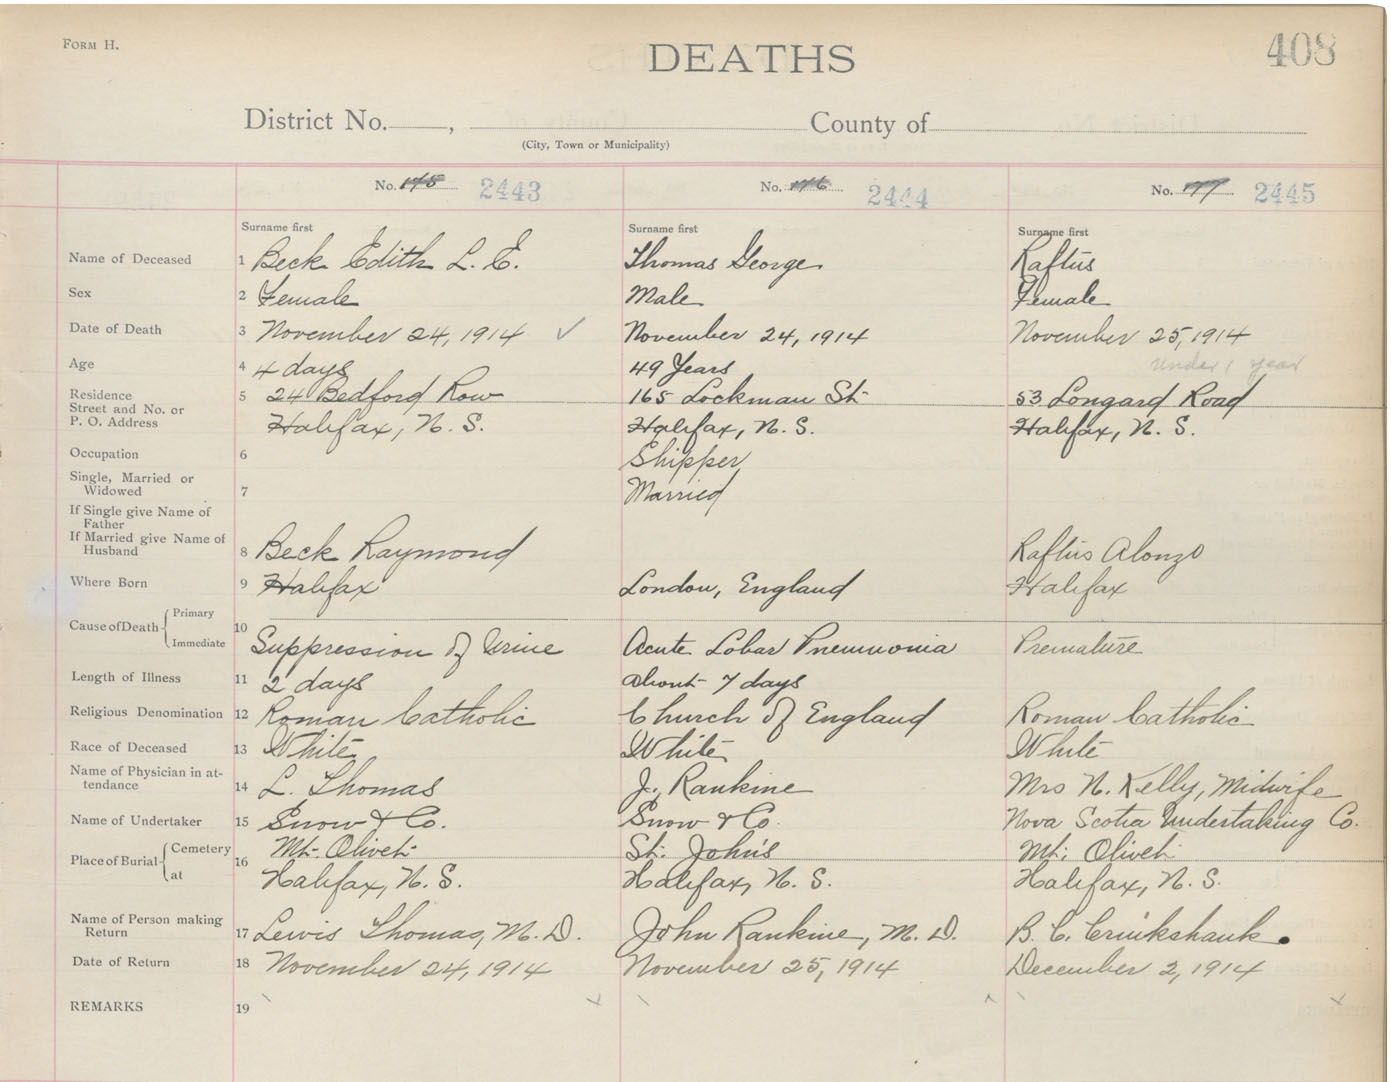 FORM H.
DEATHS
408
District No. , County of
(City, Town or Municipality)
No. 145 2443 No. 146 2444 No. 2445
Surname first Surname first Surname first
Name of Deceased 1 Beck Edith L. E. Thomas George Raftus
Sex 2 Female Male Female
Date of Death 3 November 24, 1914 ✓ November 24, 1914 November 25, 1914
Age 4 4 days 49 Years under 1 year
Residence 5 24 Bedford Row 165 Lockman St. 53 Longard Road
Street and No. or
P. O. Address Halifax, N. S. Halifax, N. S. Halifax, N. S.
Occupation 6 Shipper
Single, Married or
Widowed 7 Married
If Single give Name of
Father
If Married give Name of
Husband 8 Beck Raymond Raftus Alonzo
Where Born 9 Halifax London, England Halifax
Cause of Death { Primary
Immediate 10 Suppression of Urine Acute Lobar Pneumonia Premature
Length of Illness 11 2 days about 7 days
Religious Denomination 12 Roman Catholic Church of England Roman Catholic
Race of Deceased 13 White White White
Name of Physician in at-
tendance 14 L. Thomas J. Rankine Mrs N. Kelly, Midwife
Name of Undertaker 15 Snow & Co. Snow & Co Nova Scotia Undertaking Co.
Place of Burial { Cemetery 16 Mt. Olivet St. John's Mt. Olivet
at Halifax, N. S. Halifax, N. S. Halifax, N. S.
Name of Person making
Return 17 Lewis Thomas, M. D. John Rankine, M. D. B. C. Cruikshank.
Date of Return 18 November 24, 1914 November 25, 1914 December 2, 1914
REMARKS 19